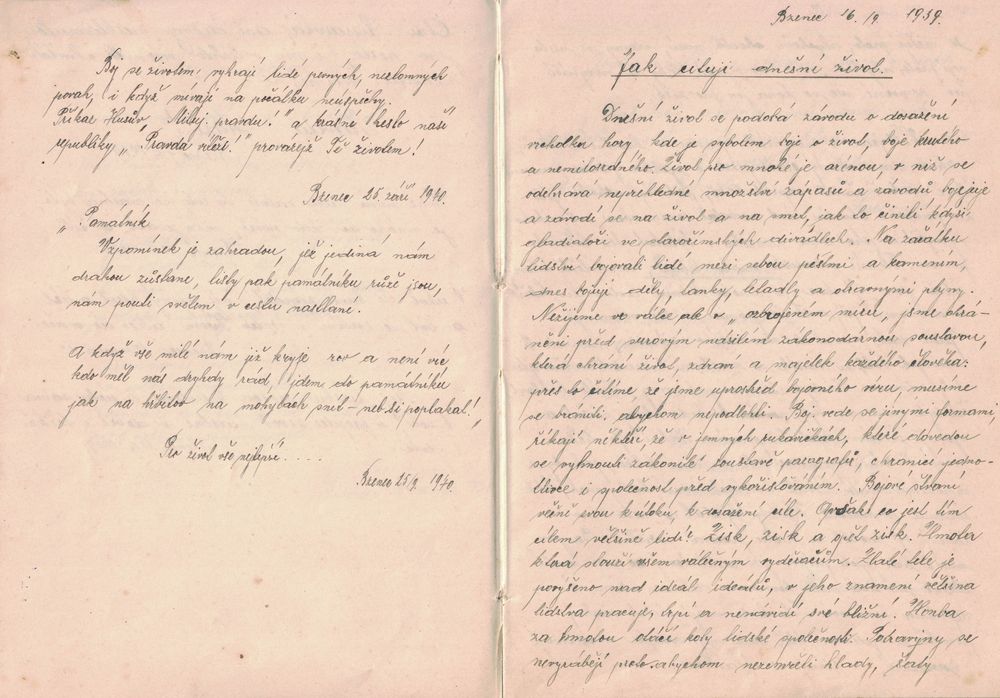 Boj se životem vyhrají lidé pevných, nezlomných
povah, i když mívají na počátku neúspěchy.
Příkaz Husův „Miluj pravdu!" a krásné heslo naší
republiky „Pravda vítězí!" provázejž Tě životem!
Bzenec 25. září 1940.
„Památník
Vzpomínek je zahradou, jež jediná nám
drahou zůstane, lístky pak památníku růže jsou,
nám poutí světem v cestu nastlané.
A když vše milé nám již kryje rov a není víc
kdo měl nás dryhdy rád, jdem do památníku
jak na hřbitov na mohylách snít – neb si poplakat!"
Pro život vše nejlepší . . . .
Bzenec 25/9 1940.
Bzenec 16/9. 1939.
Jak cituji dnešní život.
Dnešní život se podobá závodu o dosažení
vrcholku hory, kde je sybolem boje o život, boje krutého
a nemilosrdného. Život pro mnohé je arénou, v níž se
odehrává nepřehledné množství zápasů a závodů bojuje
a závodí se na život a na smrt, jak to činili kdysi
gladiatoři ve starořímských divadlech. Na začátku
lidství bojovali lidé mezi sebou pěstmi a kamením,
dnes bojují děly, tanky, letadly a otravnými plyny.
Nežijeme ve válce ale v „ozbrojeném míru, jsme chrá-
něni před surovým násilím zákonodárnou soustavou,
která chrání život, zdraví a majetek každého člověka:
přes to cítíme, že jsme uprostřed bojovného víru, musíme
se brániti, abychom nepodlehli. Boj vede se jinými formami,
říkají někteří že v jemných rukavičkách, které dovedou
se vyhnouti zákonité soustavě paragrafů, chránící jedno-
tlivce i společnost před vykořisťováním. Bojové
věčně zvou k útoku, k dosažení cíle. Ovšak co jest tím
cílem většině lidí? Zisk, zisk a opět zisk. Hmota
která slouží všem válečným vyděračům. Zlaté tele je
povýšeno nad ideál ideálů, v jeho znamení většina
lidstva pracuje, trpí a nenávidí své bližní. Honba
za hmotou otáčí koly lidské společnosti. Potraviny se
nevyrábějí proto abychom nezemřeli hlady, šaty